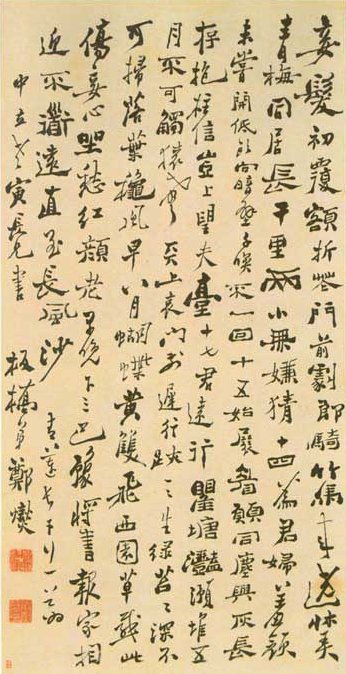 妾髮初覆額折花門前劇郎騎竹馬來遶牀弄
青梅同居長干里兩小無嫌猜十四為君婦羞顏
未嘗開低頭向暗壁千喚不一回十五始展眉願同塵與灰長
存抱柱信豈上望夫臺十七君遠行瞿塘灩澦堆五
月不可觸猿聲天上哀門前遲行跡一一生綠苔苔深不
可掃落葉秋風早八月蝴蝶黃雙飛西園草感此
傷妾心坐愁紅顏老早晚下三巴豫將書報家相
迎不道遠直至長風沙 青蓮長干行一首為
中立老寅長兄書 板橋弟鄭燮